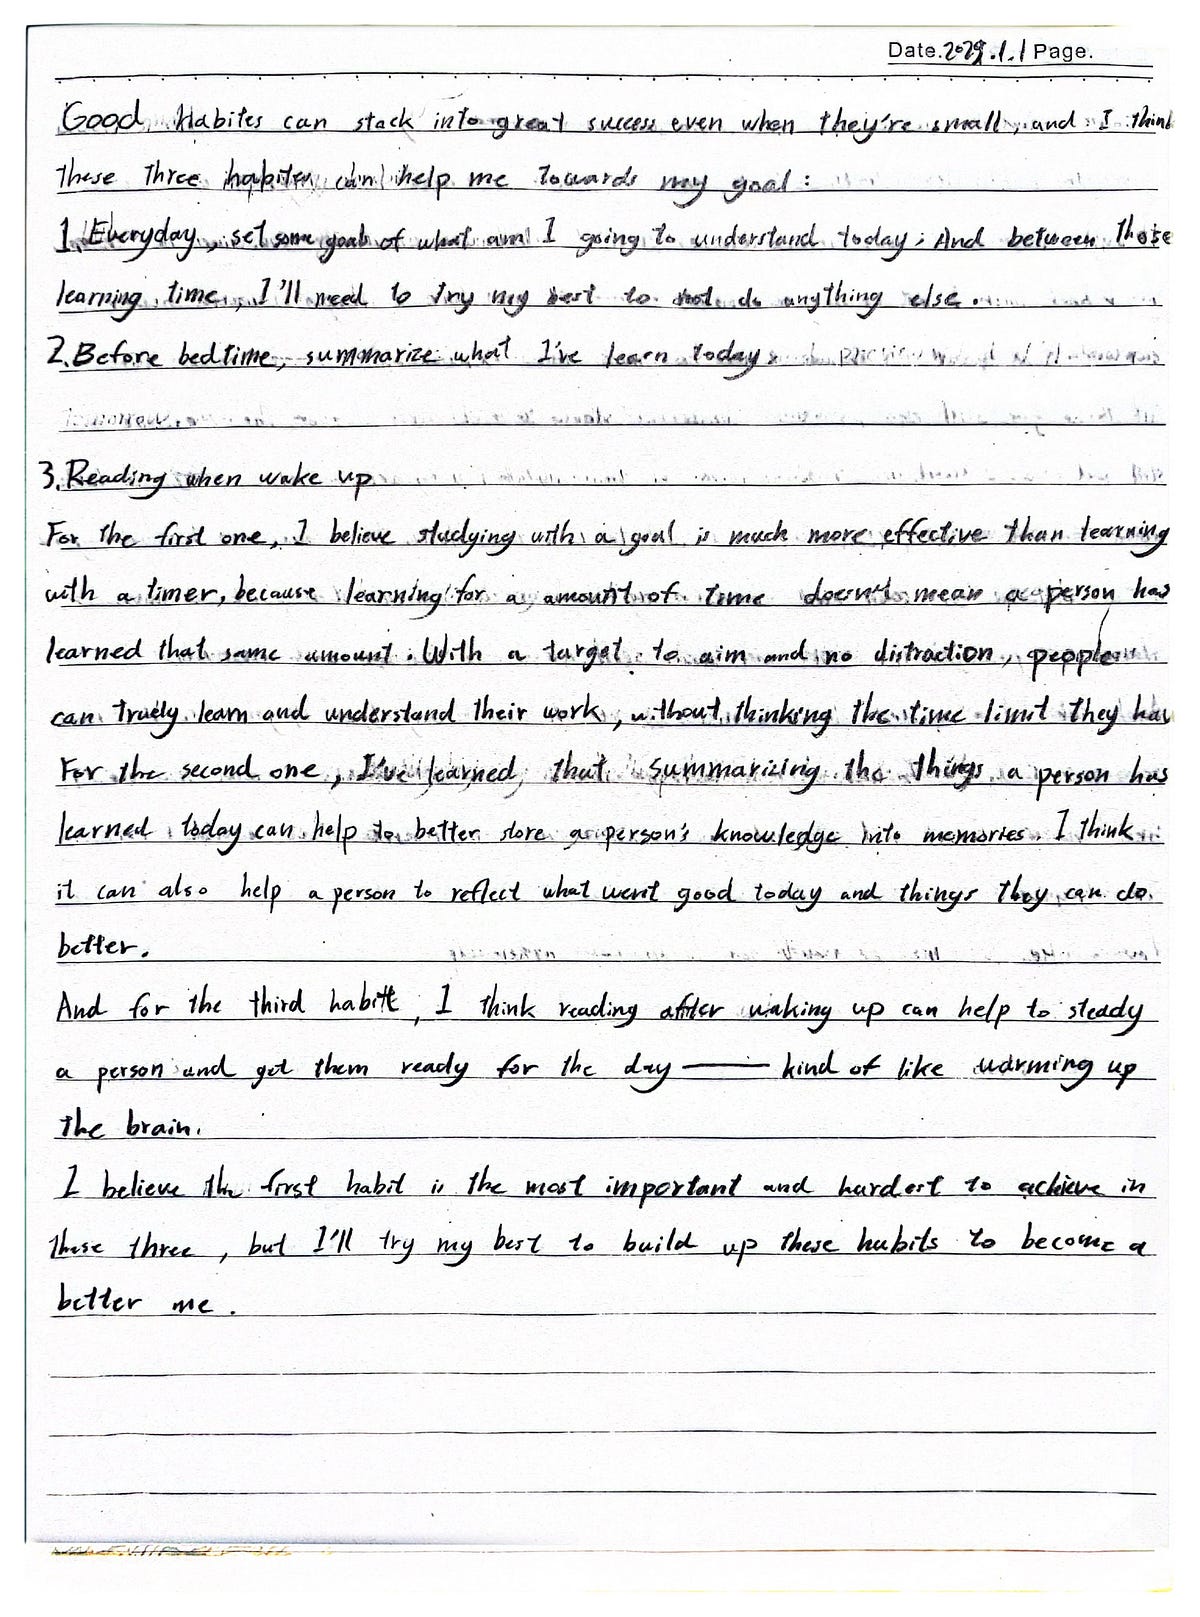 Date. 2029.1.1 Page.
Good Habites can stack into great success even when they're small, and I think
these three habites can help me towards my goal :
1. Everyday, set some goals of what am I going to understand today; And between those
learning time, I'll need to try my best to not do anything else.
2. Before bedtime, summarize what I've learn today
3. Reading when wake up
For the first one, I believe studying with a goal is much more effective than learning
with a timer, because learning for a amount of time doesn't mean a person has
learned that same amount. With a target to aim and no distraction, people
can truely learn and understand their work, without thinking the time limit they hav
For the second one, I've learned that summarizing the things a person has
learned today can help to better store a person's knowledge into memories. I think
it can also help a person to reflect what went good today and things they can do
better.
And for the third habit, I think reading after waking up can help to steady
a person and get them ready for the day —— kind of like warming up
the brain.
I believe the first habit is the most important and hardest to achieve in
these three, but I'll try my best to build up these habits to become a
better me.